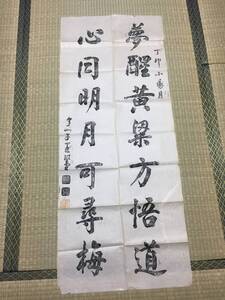 夢醒黃粱方悟道
丁卯小陽月
心同明月可尋梅